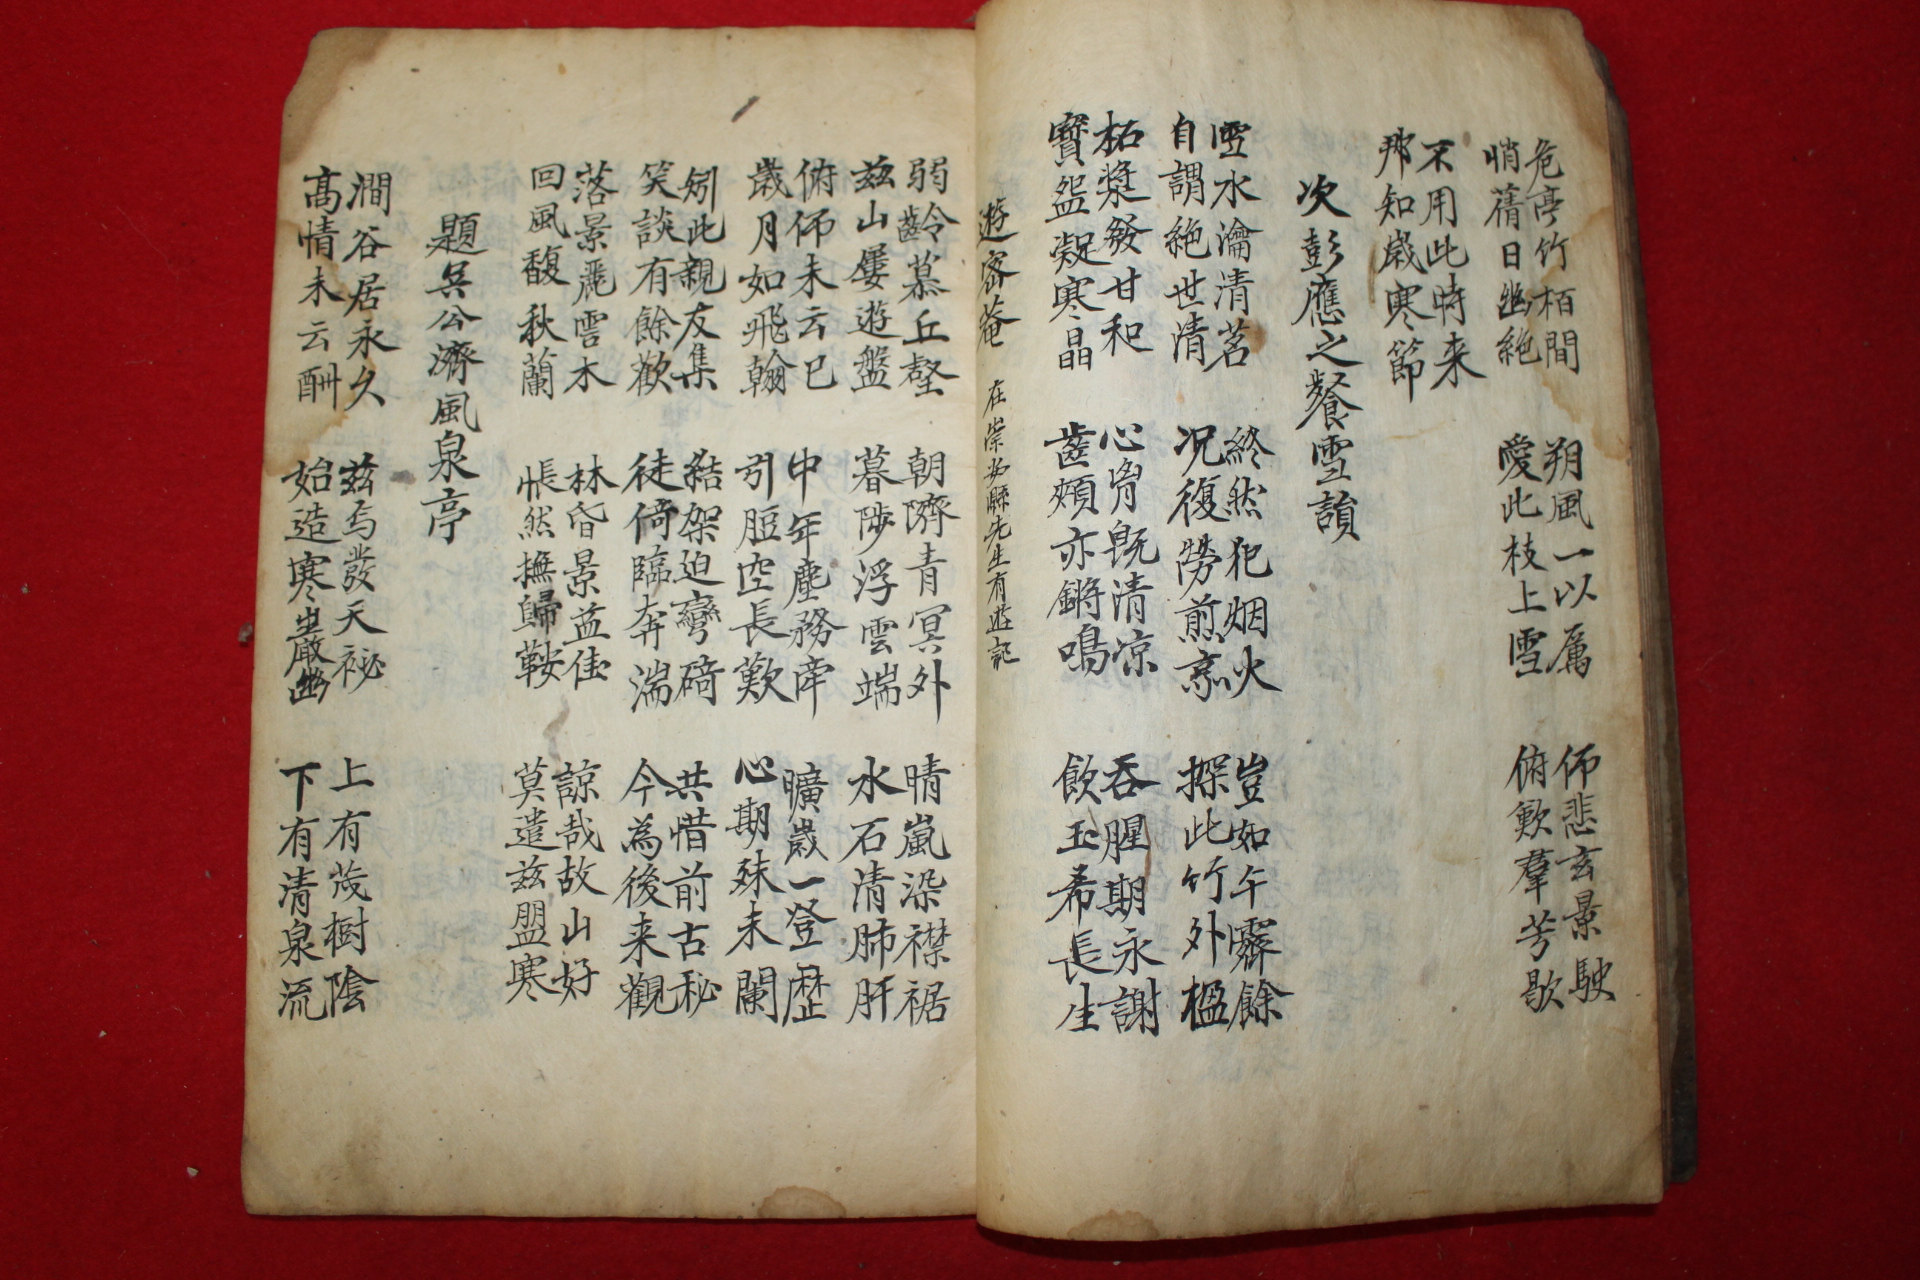 危亭竹栢間
悄蒨日幽絶
朔風一以厲
愛此枝上雪
仰悲玄景駛
俯歎羣芳歇
不用此時来
那知歲寒節
次彭應之餐雪韻
雪水瀹清茗
自謂絶世清
終然犯烟火
况復勞煎烹
豈如午霽餘
探此竹外楹
柘漿發甘和
寶盌凝寒晶
心胷旣清凉
齒頰亦鏘鳴
吞腥期永謝
飲玉希長生
遊密菴 在崇安縣先生有遊記
弱齡慕丘壑
茲山屢遊盤
朝隮青冥外
暮陟浮雲端
晴嵐染襟裾
水石清肺肝
俯仰未云已
歲月如飛翰
中年塵務牽
引脰空長歎
曠歲一登歷
心期殊未闌
矧此親友集
笑談有餘歡
結架迫彎碕
徙倚臨奔湍
共惜前古秘
今為後来觀
落景麗雲木
回風馥秋蘭
林昏景益佳
悵然撫歸鞍
諒哉故山好
莫遣茲盟寒
題吳公濟風泉亭
澗谷居永久
高情未云酬
茲焉發天秘
始造寒巖幽
上有茂樹陰
下有清泉流